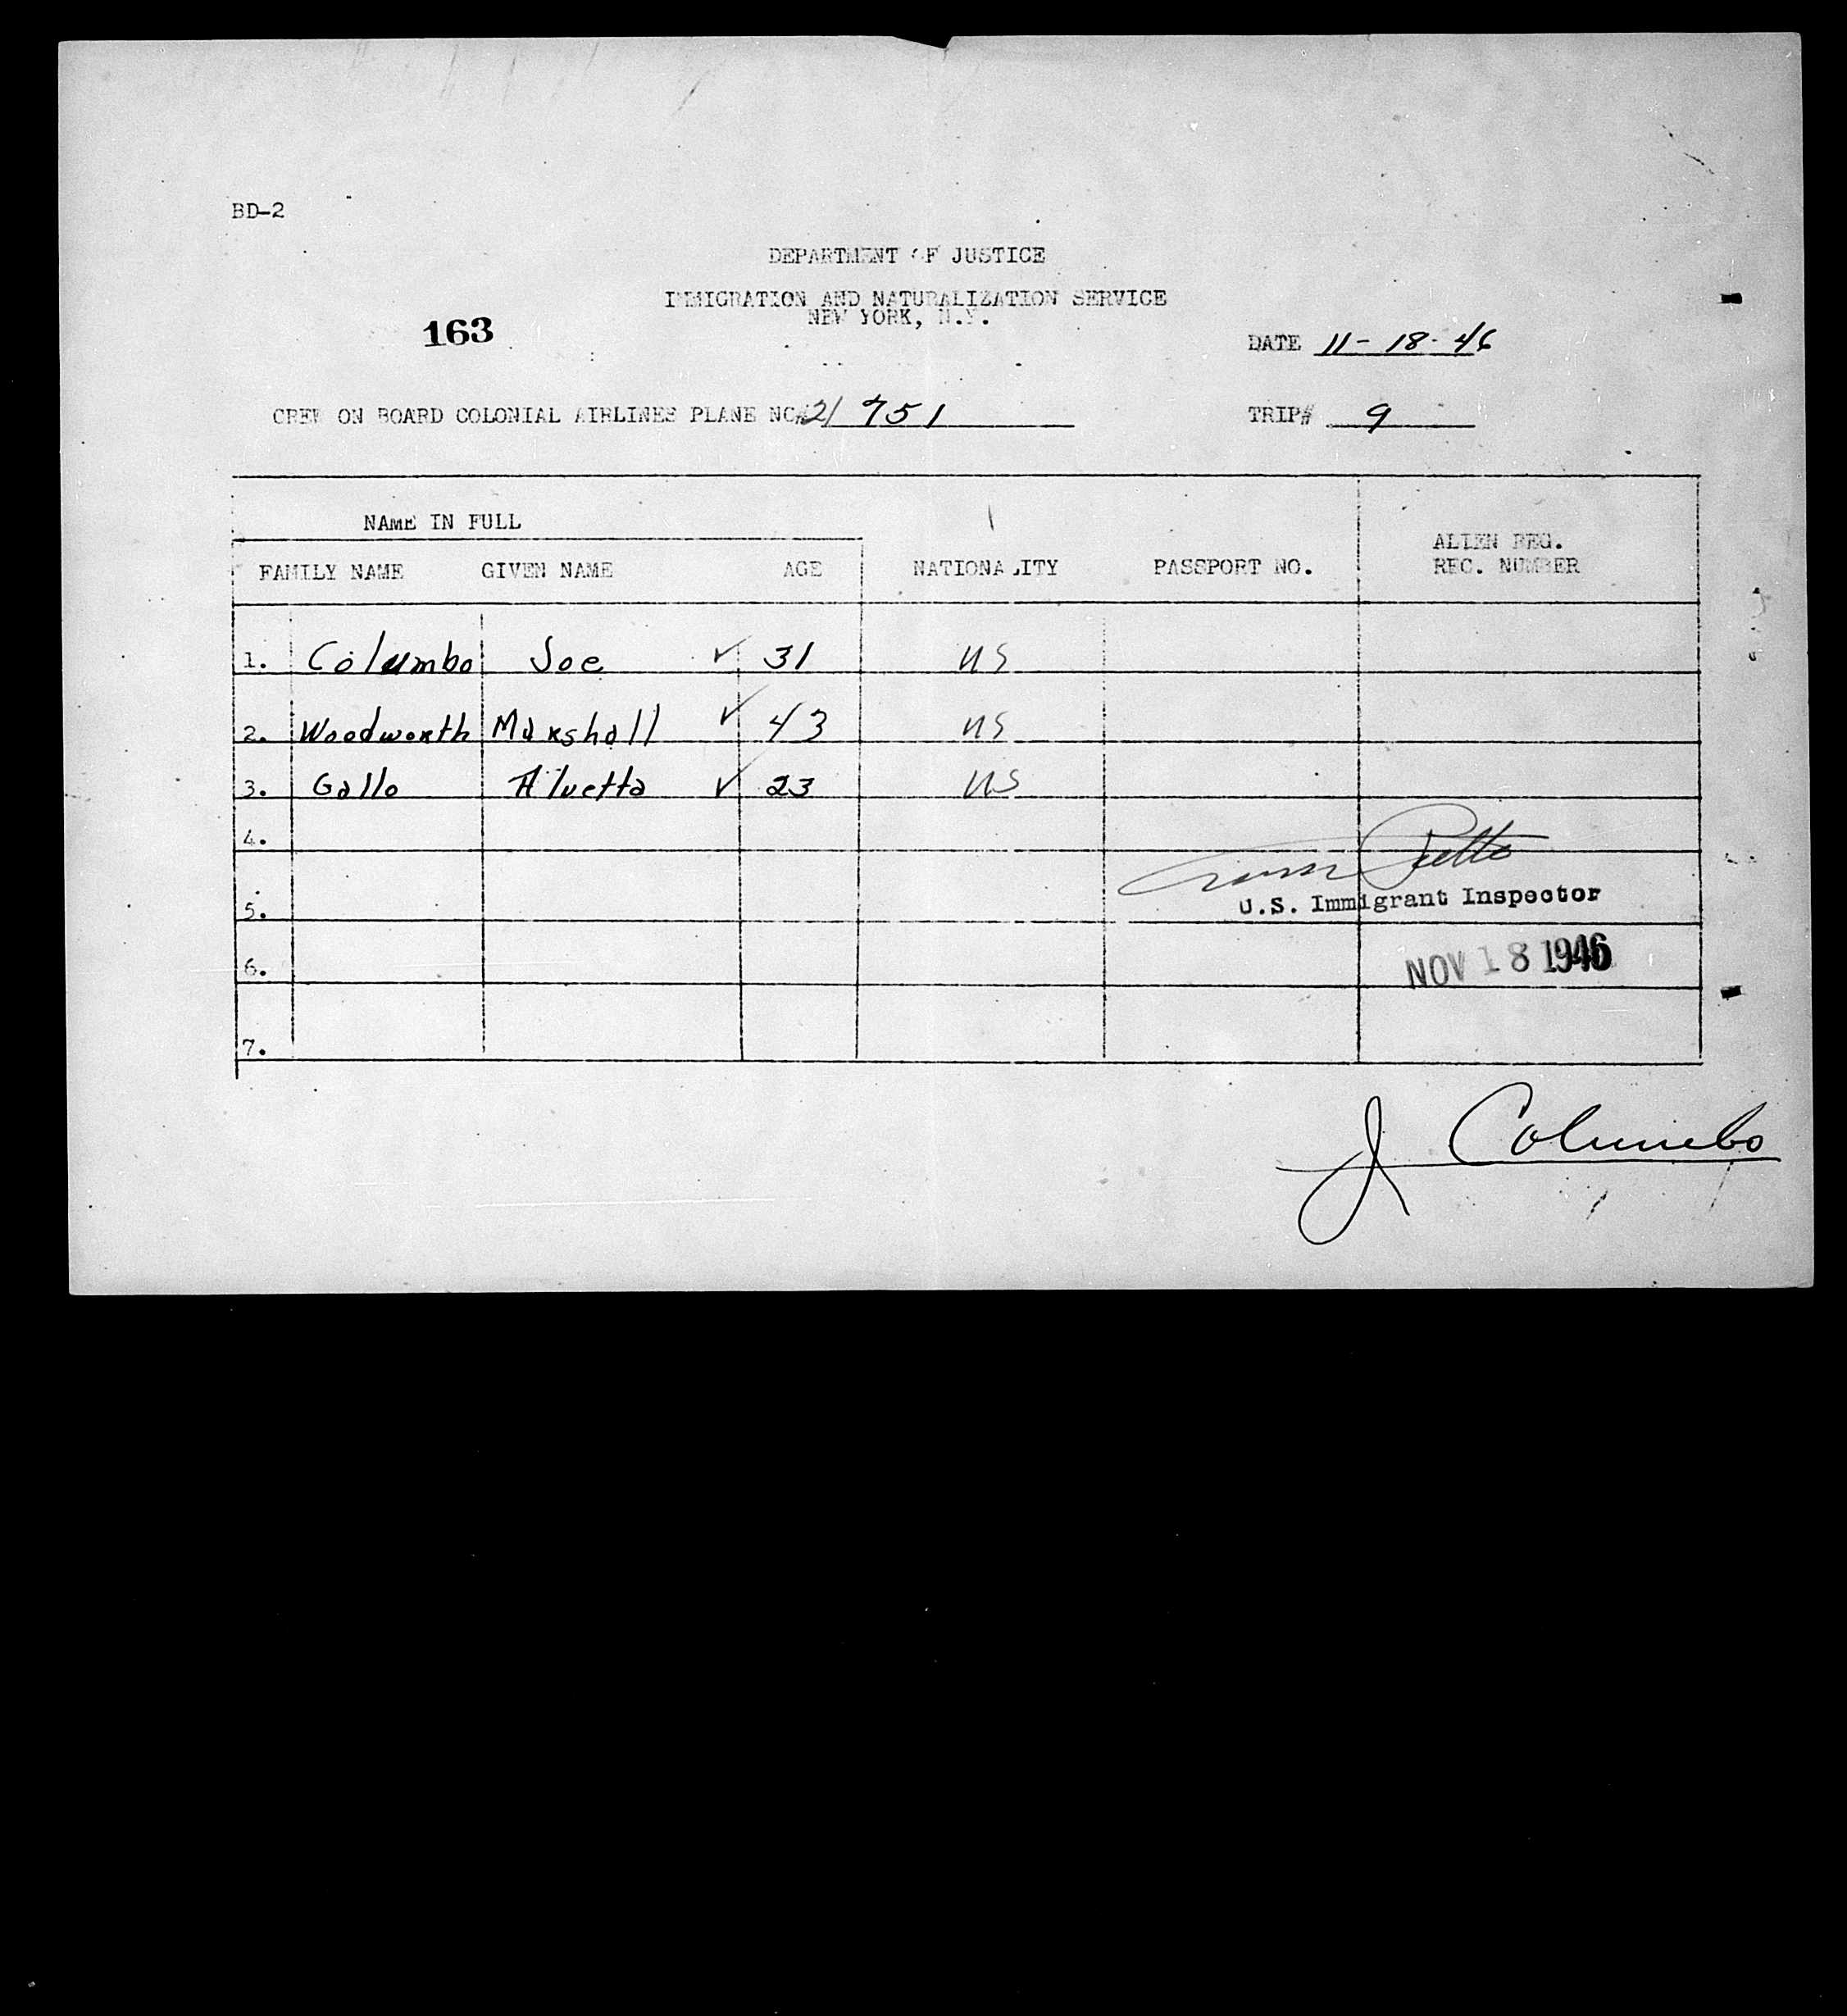 BD-2
DEPARTMENT OF JUSTICE
IMMIGRATION AND NATURALIZATION SERVICE
NEW YORK, N.Y.
163
DATE 11-18-46
CREW ON BOARD COLONIAL AIRLINES PLANE NO. 21751
TRIP# 9
NAME IN FULL
FAMILY NAME GIVEN NAME AGE NATIONALITY PASSPORT NO. ALIEN REG. REC. NUMBER
1. Columbo Joe ✓ 31 US
2. Woodworth Marshall ✓ 43 US
3. Gallo Alvetta ✓ 23 US
4.
5.
U.S. Immigrant Inspector
6.
NOV 18 1946
7.
J Columbo